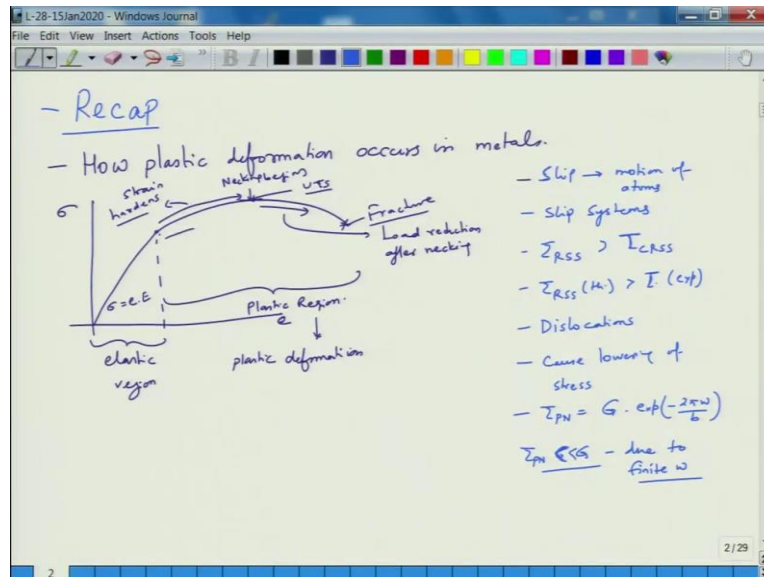 L-28-15Jan2020 - Windows Journal
File Edit View Insert Actions Tools Help
B I
- Recap
- How plastic deformation occurs in metals.
σ
strain hardens
Necking begins
UTS
Fracture
Load reduction
after necking
σ = e.E
Plastic Region.
e
elastic
region
plastic deformation
- Slip → motion of
atoms
- Slip Systems
- τRSS > τCRSS
- τRSS (th.) > τ. (exp)
- Dislocations
- Cause lowering of
stress
- τPN = G . exp(-2πw/b)
τPN <<G - due to
finite w
2/29
2